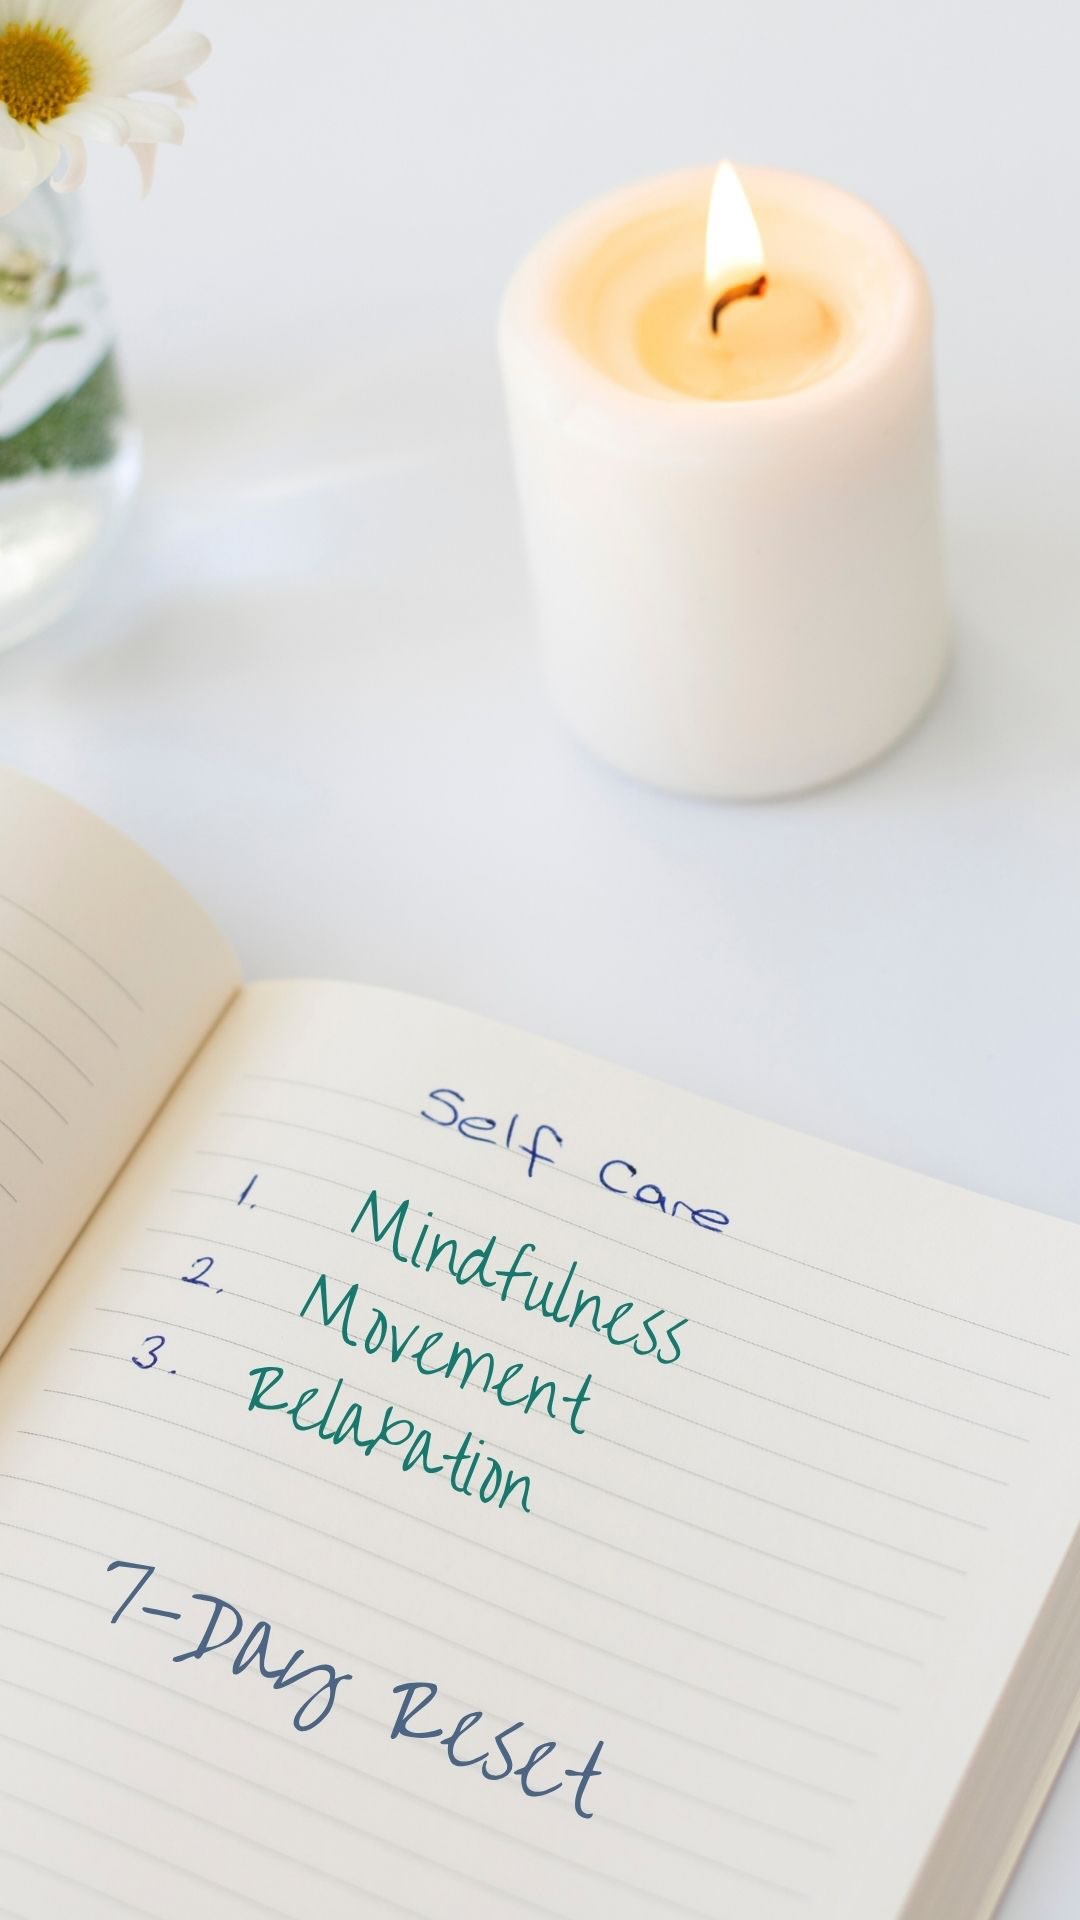 Self Care
1. Mindfulness
2. Movement
3. Relaxation
7-Day Reset